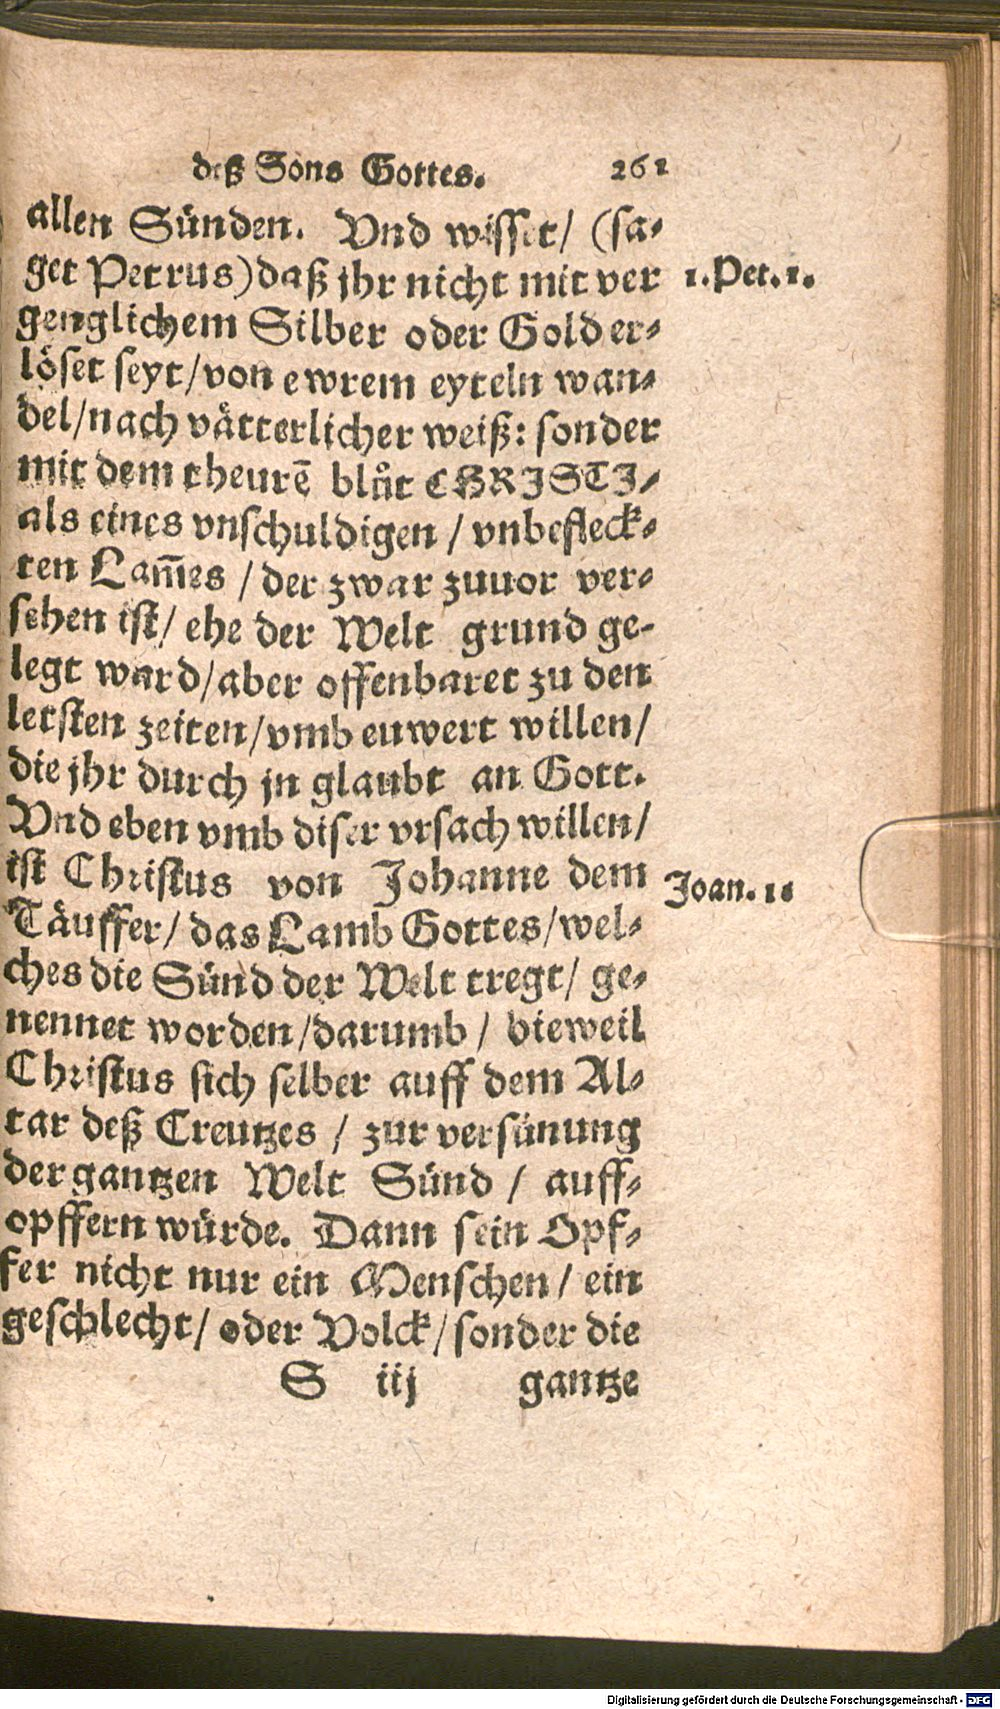 deß Sons Gottes. 261
allen Sünden. Vnd wisset/ (sa-
get Petrus) daß jhr nicht mit ver
genglichem Silber oder Gold er-
löset seyt/ von ewrem eyteln wan-
del/ nach vätterlicher weiß: sonder
mit dem theurē blůt CHRISTI/
als eines vnschuldigen / vnbefleck-
ten Lam̄es / der zwar zuuor ver-
sehen ist/ ehe der Welt grund ge-
legt ward/ aber offenbaret zu den
letsten zeiten/ vmb euwert willen/
die jhr durch jn glaubt an Gott.
Vnd eben vmb diser vrsach willen/
ist Christus von Johanne dem
Täuffer/ das Lamb Gottes/ wel-
ches die Sünd der Welt tregt/ ge-
nennet worden/ darumb / dieweil
Christus sich selber auff dem Al-
tar deß Creutzes / zur versünung
der gantzen Welt Sünd / auff-
opffern würde. Dann sein Opf-
fer nicht nur ein Menschen/ ein
geschlecht/ oder Volck/ sonder die
S iij gantze
1. Pet. 1.
Joan. 1.
Digitalisierung gefördert durch die Deutsche Forschungsgemeinschaft - DFG